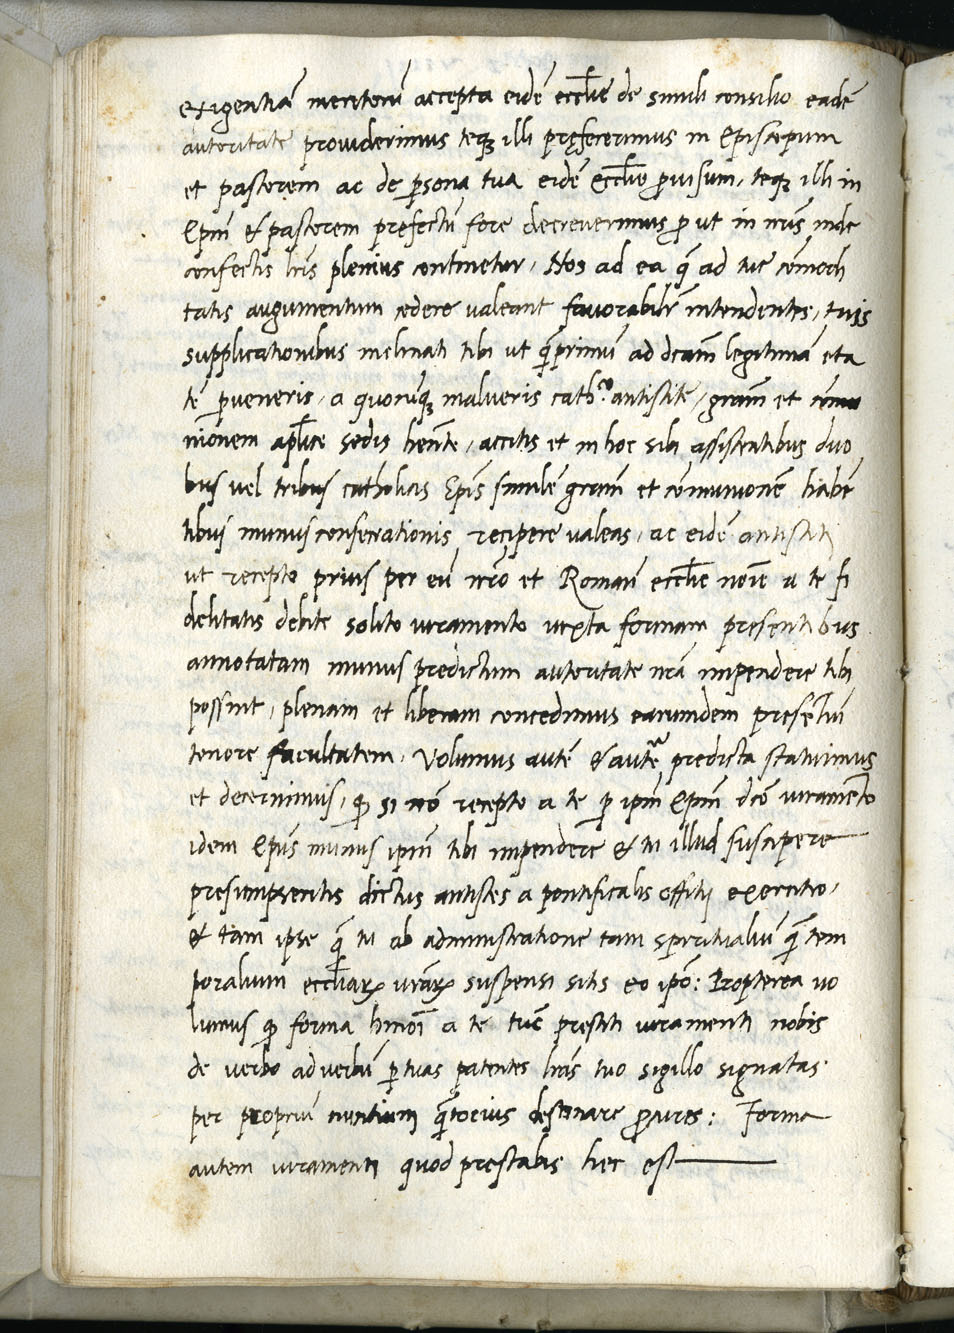 exigentiā meritorū accepta eidē eccl̄ie de simili consilio eadē
autoritate prouiderimus teqȝ illi pręfecerimus in Episcopum
et pastorem ac de ꝑsona tua eidē eccl̄ie ꝓuisum, teqȝ illi in
Ep̄m & pastorem prefectū fore decreuerimus ꝓ ut in nr̄is inde
confectis lr̄is plenius continetur, Nos ad ea q̄ ad tue cōmodi
tatis augumentum cedere valeant fauorabilr̄ intendentes, tuis
supplicationibus inclinati tibi ut q̄ꝫprimū ad dc̄am legitimā eta
tē ꝑueneris, a quocūqȝ malueris cath.co antistite, gram̄ et cōmu
nionem apl̄ice sedis hen̄te, accitis et in hoc sibi assistentibus duo
bus uel tribus catholicis Ep̄is similē gram̄ et cōmunionē habē
tibus munus consecrationis recipere valeas, ac eidē antistiti
ut recepto prius per eū nr̄o et Roman̄ eccl̄ie noīe a te fi
delitatis debite solito iuramento iuxta formam presentibus
annotatam munus predictum autoritate nr̄a impendere tibi
possint, plenam et liberam concedimus earumdem presentiū
tenore facultatem. Volumus autē & auteᵃ predicta statuimus
et decernimus, qꝫ si nō recepto a te ꝑ ip̄m Ep̄m dc̄o iuramēto
idem Ep̄us munus ip̄m tibi impendere & tu illud suscipere
presumpseritis dictus antistes a pontificalis offitij exercitio,
& tam ipse q̄ꝫ tu ab administratione tam spiritualiū q̄ꝫ tem
poralium eccl̄iaꝝ ur̄aꝝ suspensi sitis eo ip̄o: Propterea uo
lumus qꝫ forma hmōi a te tūc prestiti iuramenti nobis
de verbo ad verbū ꝑ tuas patentes lr̄as tuo sigillo signatas
per propriū nuntium q̄ꝫtocius destinare ꝓcures: Forma
autem iuramenti quod prestabis hec est